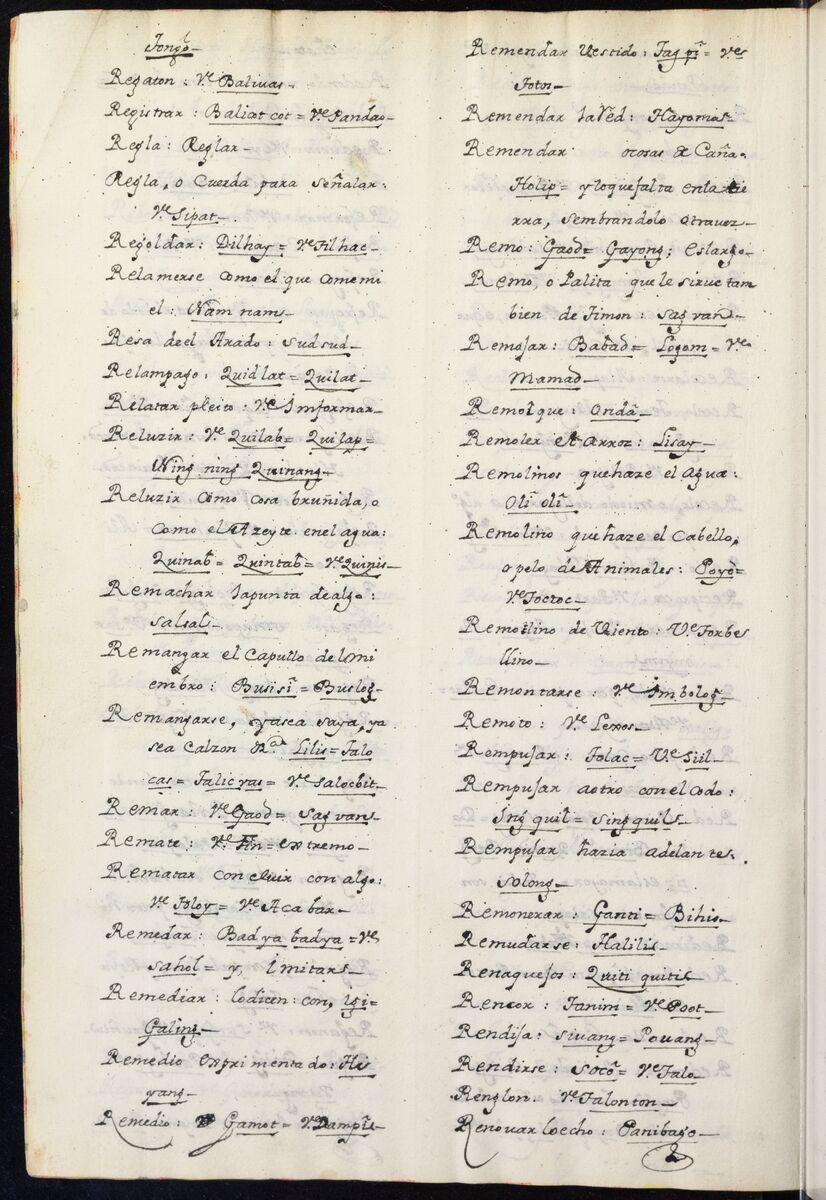 Tongõ–
Regaton: Vᵉ Balivas–
Registrar: Balicot cot = Vᵉ Pandao–
Regla: Reglar–
Regla, o Cuerda para señalar:
Vᵉ Sipat–
Regoldar: Dilhay = Vᵉ Tilhac–
Relamerse Como el que Comemi
el: Nam nam–
Resa de el Arado: Sudsud–
Relampago: Quidlat = Quilat–
Relatar pleito: Vᵉ Imformar–
Reluzir: Vᵉ Quilab = Quilap =
Ning ning Quinang–
Reluzir Como Cosa bruñida, o
Como el Azeyte enel agua:
Quinab = Quintab = Vᵉ Quinis–
Remachar lapunta dealgo:
Salsal–
Remangar el Capullo delmi
embro: Busisi = Buslog–
Remangarse, yasea saya, ya
sea Calzon &ᵃ: Lilis = Talo
cas = Talicyas = Vᵉ Salocbit–
Remar: Vᵉ Gaod = Sagvan–
Remate: Vᵉ Fin = extremo–
Rematar concluir con algo:
Vᵉ Toloy = Vᵉ Acabar–
Remedar: Badya badya = Vᵉ
sahol = y, Imitar–
Remediar: lodicen: con, igi=
Galing–
Remedio exprimentado: Hi
yang–
Remedio: Gamot = Vᵉ Dampis–
Remendar Vestido: Tagpi = Vᵉ
Totos–
Remendar laRed: Hayomas
Remendar ocosas de Caña.
Holip = y loquefalta enlatie
rra, sembrandolo otravez–
Remo: Gaod = Gayong; eslargo–
Remo, o Palita que le sirue tam
bien de Timon: Sagvan–
Remojar: Babad = Logom = Vᵉ
Mamad–
Remolque: Onda–
Remoler el Arroz: Lisay–
Remolinos quehaze el Agua:
Oli oli–
Remolino quehaze el Cabello,
o pelo de Animales: Poyo =
Vᵉ Tocroc–
Remolino de Viento: Vᵉ Torbe
llino–
Remontarse: Vᵉ Imbolog–
Remoto: Vᵉ Lexos–
Rempujar: Tolac = Vᵉ Siil–
Rempujar aotro con el Codo:
Ingquil = Singquil–
Rempujar hazia adelante:
Solong–
Remonerar: Ganti = Bihis–
Remudarse: Halilis–
Renaquajos: Quiti quitis
Rencor: Tanim = Vᵉ Poot–
Rendija: Sivang = Povang–
Rendirse: Soco = Vᵉ Talo–
Renglon. Vᵉ Talonton–
Renovar loecho: Panibago–